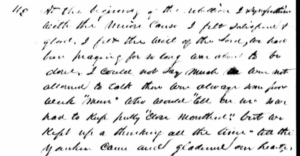 115 At the beginning of the rebellion I sympathized
with the Union Cause I felt Satisfied &
glad. I felt the will of the Lord, we had
been praying for so long was about to be
done. I could not Say much we were not
allowed to talk there are always some poor
weak "men" who would tell on us we
had to keep pretty "Close Mouthed" but we
kept up a thinking all the time till the
Yankee Came and gladened our hearts